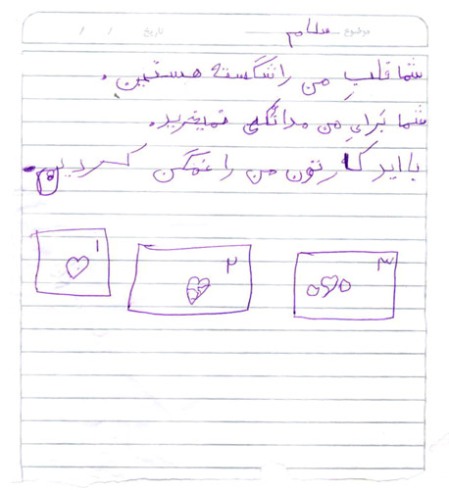 موضوع سلام تاریخ / /
شما قلبِ من را شگسته هستین.
شما بَرایِ من مداتگی نمیخرید.
با اید کارتون من را غمگن کردین.
۱ ۲ ۳